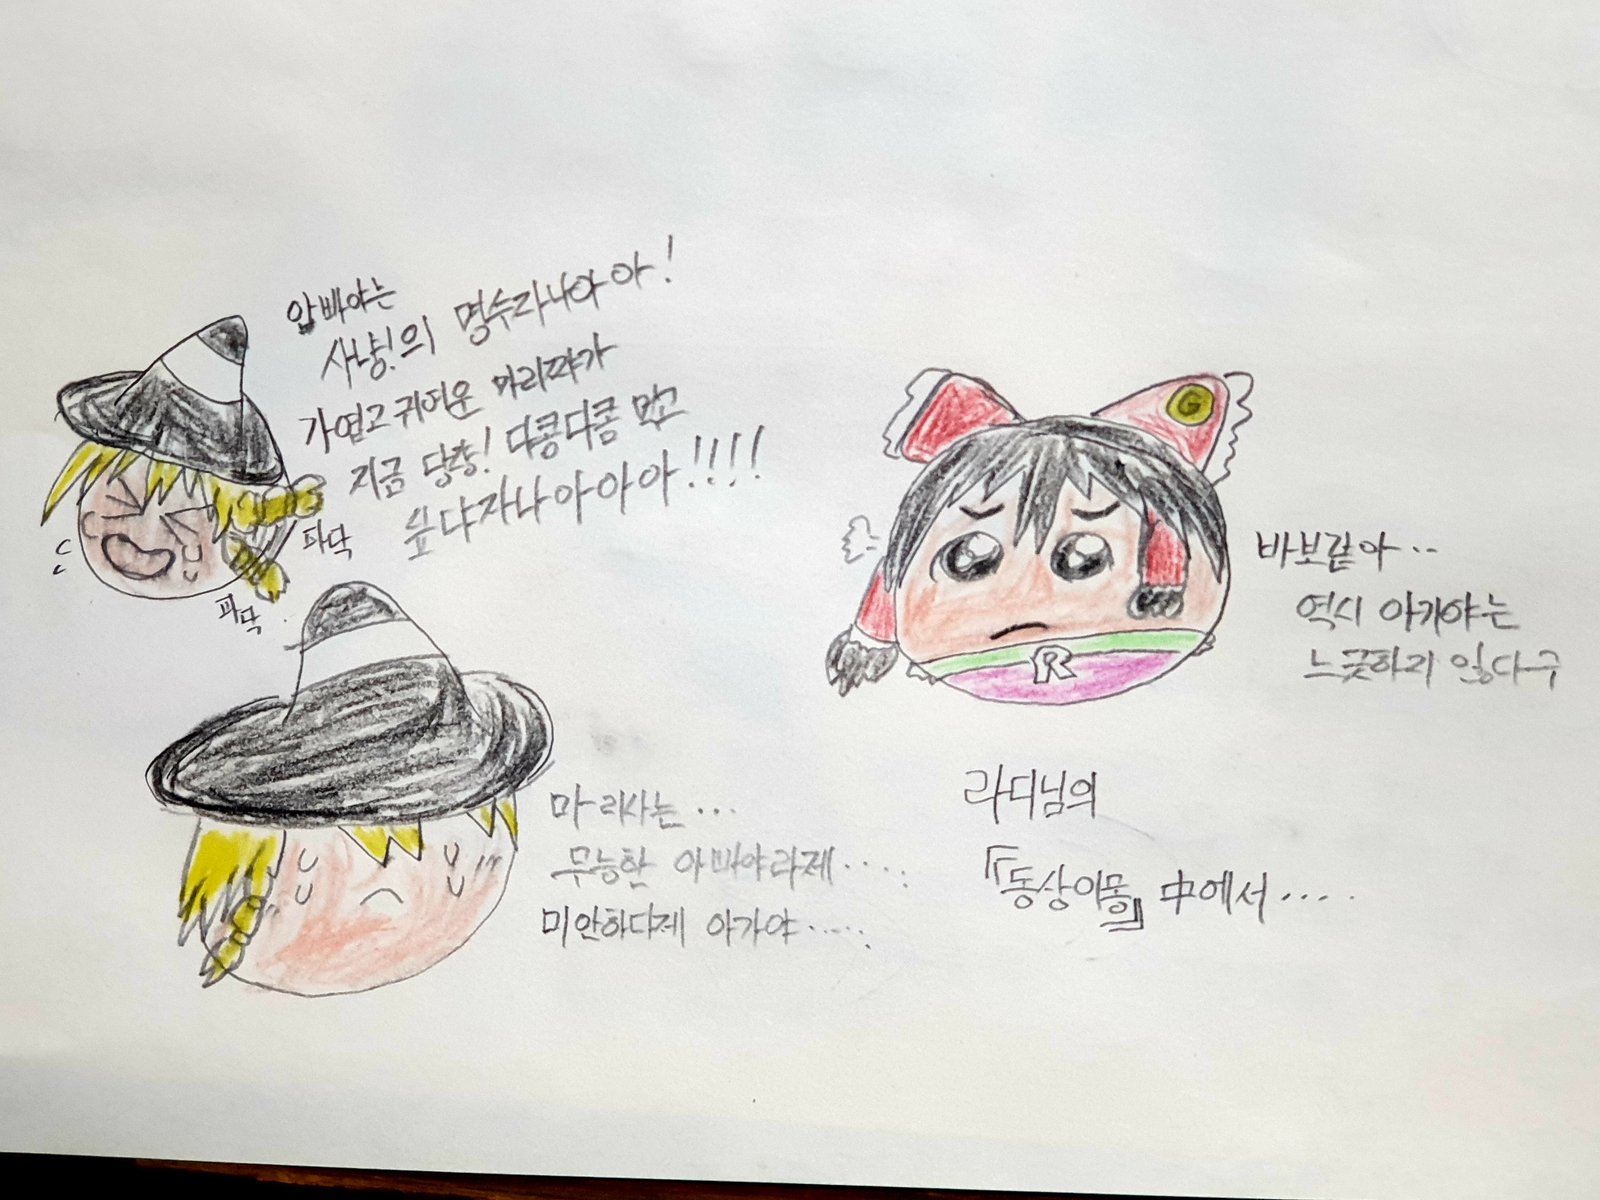 압빠야는
사냥!의 명수라니아아!
가엽고 귀여운 마리쨔가
지금 당쟝! 다콤다콤 먹고
싶댜자나아아아!!!!
파닥
파닥
마리사는...
무능한 아빠야라제....
미안하다제 아가야.....
G
R
바보같아..
역시 아가야는
느긋하지 않다구
라디님의
『동상이몽』 中에서.....